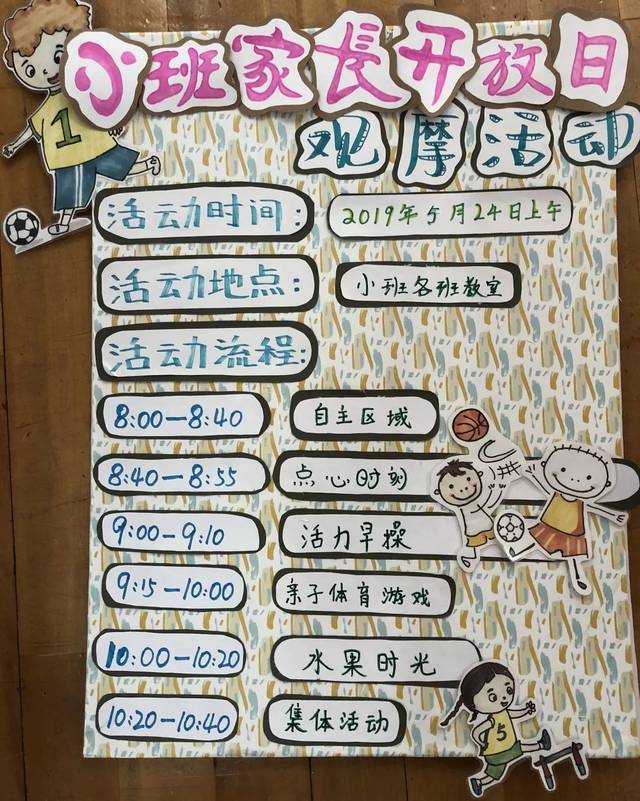 小班家長开放日
观摩活动
活动时间: 2019年5月24日上午
活动地点: 小班各班教室
活动流程:
8:00—8:40 自主区域
8:40—8:55 点心时刻
9:00—9:10 活力早操
9:15—10:00 亲子体育游戏
10:00—10:20 水果时光
10:20—10:40 集体活动
1
5